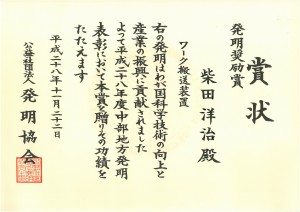 賞状
発明奨励賞
ワーク搬送装置
柴田洋治殿
右の発明はわが国科学技術の向上と
産業の振興に貢献されました
よって平成二十八年度中部地方発明
表彰において本賞を贈りその功績を
たたえます
平成二十八年十一月二十二日
公益社団法人 発明協会